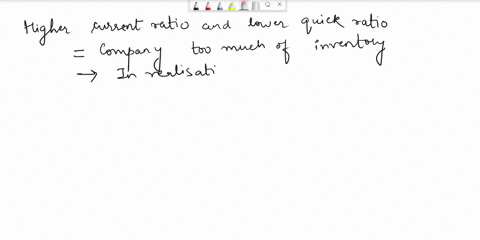 Higher current ratio and lower quick ratio
= Company too much of inventory
→ In realisati